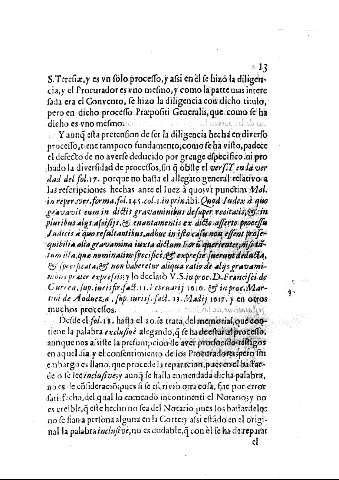 13
S. Teresæ, y es vn solo processo, y assi en èl se hizo la diligen-
cia, y el Procurador es vno mesmo, y como la parte mas intere
sada era el Convento, se hizo la diligencia con dicho titulo,
pero en dicho processo Præpositi Generalis, que como se ha
dicho es vno mesmo.
Y aunq̃ esta pretension de ser la diligencia hecha en diverso
processo, tiene tampoco fundamento, como se ha visto, padece
el defecto de no averse deducido por greuge especifico, ni pro
bado la diversidad de processos, sin q̃ obste el vers. Y en la ver
dad del fol. 17. porque no basta el allegato general relativo a
las rescripciones hechas ante el Iuez à quo, vt punctim Mol.
in reper. ver. forma, fol. 145. col. 1. in prin. ibi. Quod Iudex à quo
gravavit eum in dictis gravaminibus desuper recitatis, & in
pluribus alijs
Iudicis à quo resultantibus, adhuc in isto casu non essent prose-
quibilia alia gravamina iuxta dictum
tum illa, que nominatim specificè, & expressè fuerant deducta,
& specificata, & non haberetur aliqua ratio de alijs gravami-
nibus præter expressis; y lo declarò V. S. in proc. D. Francisci de
Gurrea, sup. iurisf. fact. 11. Februarij 1616. & in proc. Mar-
tini de Andueza, sup. iurisf. fact. 13. Madij 1617. y en otros
muchos processos.
Desde el fol. 18. hasta el 20. se trata, del memorial, que con-
tiene la palabra exclusivè alegando, q̃ se ha de estar al processo,
aunque nos assiste la presumpcion de aver producido testigos
en aquel dia, y el consentimiento de los Procuradores, pero sin
embargo es llano, que procede la reparacion, pues en el hastar-
de o se lee inclusivè, y aunq̃ se halla enmendada dicha palabra,
no es de cõsideraciõ; pues si se escrivio otra cosa, fue por error
satisfecho, del qual lo enmendò incontinenti el Notario, y no
es creible, q̃ este hecho no sea del Notario, pues los hastardelos
no se fian a persona alguna en la Corte, y assi estando en el origi-
nal la palabra inclusivè, no es dudable, q̃ con èl se ha de reparar
el